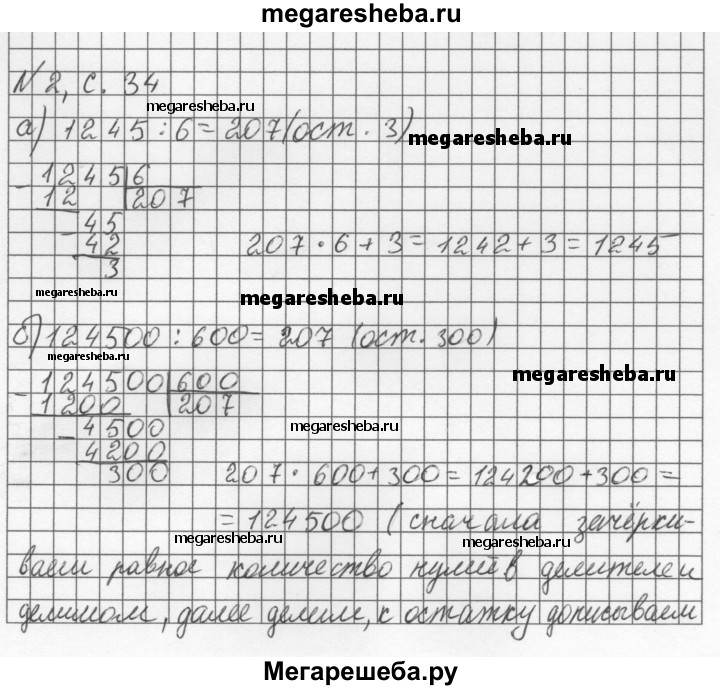 megaresheba.ru
N 2, с. 34
megaresheba.ru
а) 1245 : 6 = 207 (ост. 3)
megaresheba.ru
- 1245 | 6
12 | 207
- 45
42
3
207 · 6 + 3 = 1242 + 3 = 1245
megaresheba.ru
megaresheba.ru
б) 124500 : 600 = 207 (ост. 300)
megaresheba.ru
megaresheba.ru
- 124500 | 600
1200 | 207
megaresheba.ru
- 4500
4200
300
207 · 600 + 300 = 124200 + 300 =
= 124500 (сначала зачёрки-
megaresheba.ru
megaresheba.ru
ваем равное количество нулей в делителе и
делимом, далее делим, к остатку дописываем
Мегарешеба.ру